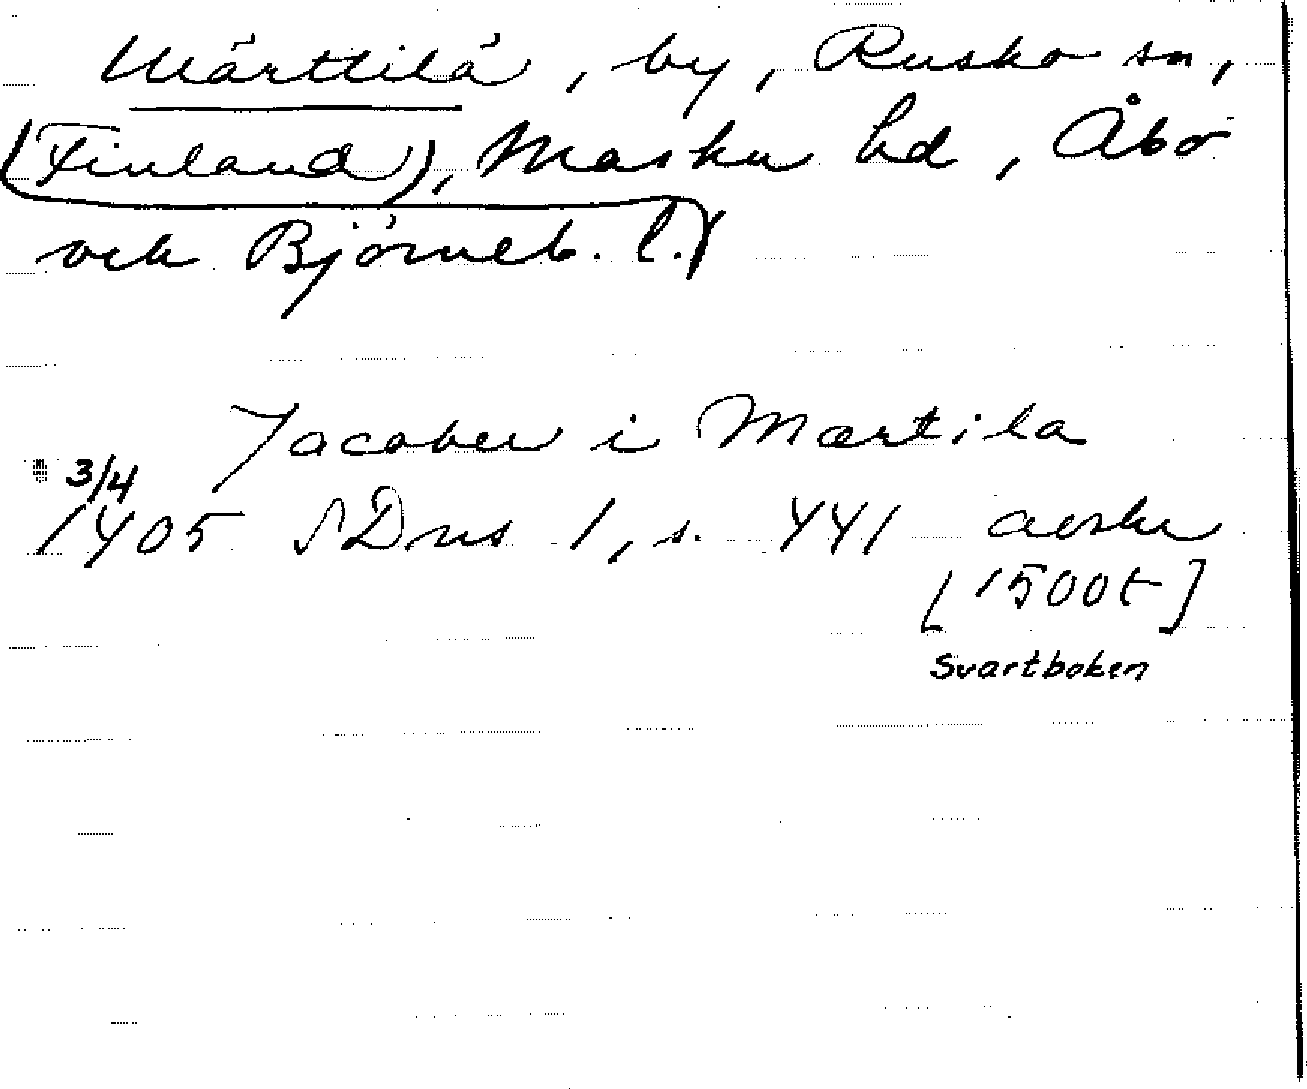 Märttilä, by, Rusko sn,
(Finland), Masku hd, Åbo
och Björneb. l.)
Jacober i Martila
3/4
1405 SDns 1, s. 441 avskr
[1500t]
Svartboken